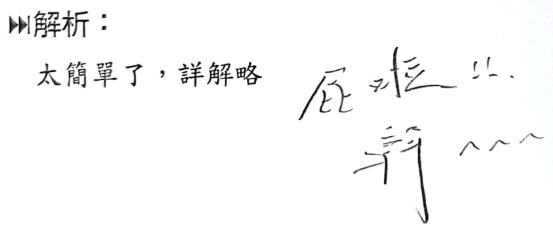 ▶▶▶解析：
太簡單了，詳解略
屁啦!!.
~~~